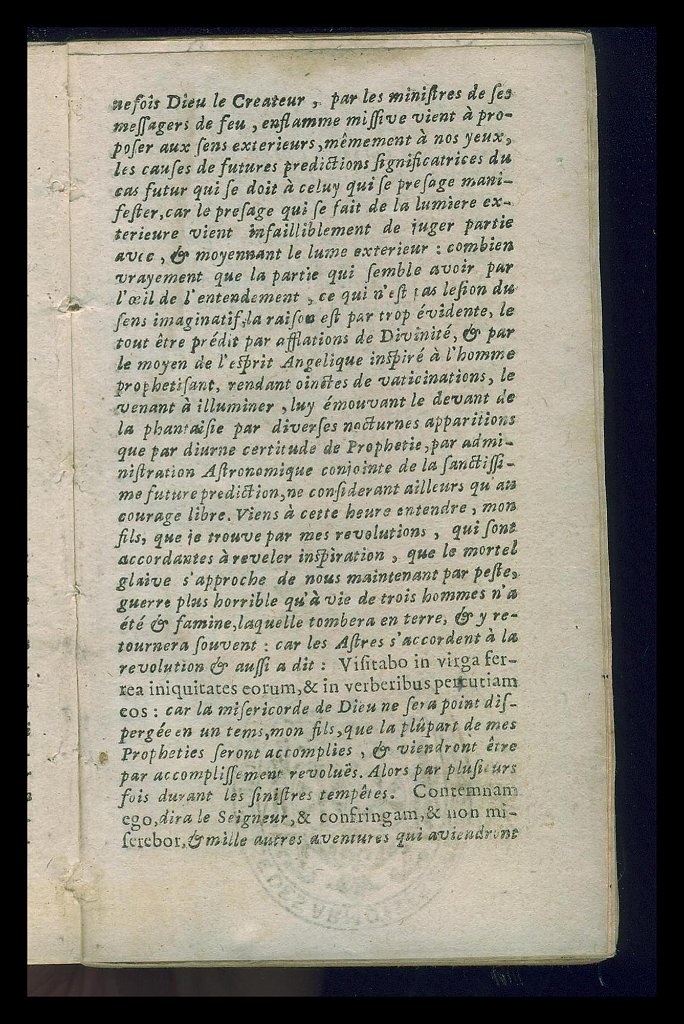 nefois Dieu le Createur, par les miniſtres de ſes
meſſagers de feu, enflamme miſſive vient à pro-
poſer aux ſens exterieurs, mêmement à nos yeux,
les cauſes de futures predictions ſignificatrices du
cas futur qui ſe doit à celuy qui ſe preſage mani-
feſter, car le preſage qui ſe fait de la lumiere ex-
terieure vient infailliblement de juger partie
avec, & moyennant le lume exterieur : combien
vrayement que la partie qui ſemble avoir par
l'œil de l'entendement, ce qui n'eſt pas leſion du
ſens imaginatif, la raiſon eſt par trop évidente, le
tout être prédit par afflations de Divinité, & par
le moyen de l'eſprit Angelique inſpiré à l'homme
prophetiſant, rendant oinctes de vaticinations, le
venant à illuminer, luy émouvant le devant de
la phantaiſie par diverſes nocturnes apparitions
que par diurne certitude de Prophetie, par admi-
niſtration Aſtronomique conjointe de la ſanctiſſi-
me future prediction, ne conſiderant ailleurs qu'au
courage libre. Viens à cette heure entendre, mon
fils, que je trouve par mes revolutions, qui ſont
accordantes à reveler inſpiration, que le mortel
glaive s'approche de nous maintenant par peſte,
guerre plus horrible qu'à vie de trois hommes n'a
été & famine, laquelle tombera en terre, & y re-
tournera ſouvent : car les Aſtres s'accordent à la
revolution & auſſi a dit : Viſitabo in virga fer-
rea iniquitates eorum, & in verberibus percutiam
eos : car la miſericorde de Dieu ne ſera point diſ-
pergée en un tems, mon fils, que la plûpart de mes
Propheties ſeront accomplies, & viendront être
par accompliſſement revoluës. Alors par pluſieurs
fois durant les ſiniſtres tempêtes. Contemnam
ego, dira le Seigneur, & confringam, & non mi-
ſerebor, & mille autres aventures qui aviendront